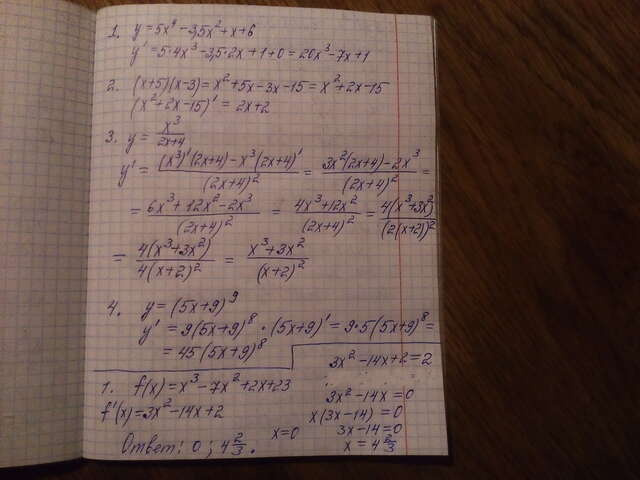 1. y = 5x⁴ - 3,5x² + x + 6
y' = 5·4x³ - 3,5·2x + 1 + 0 = 20x³ - 7x + 1
2. (x+5)(x-3) = x² + 5x - 3x - 15 = x² + 2x - 15
(x² + 2x - 15)' = 2x + 2
3. y = x³/(2x+4)
y' = ((x³)'(2x+4) - x³(2x+4)')/(2x+4)² = (3x²(2x+4) - 2x³)/(2x+4)² =
= (6x³ + 12x² - 2x³)/(2x+4)² = (4x³ + 12x²)/(2x+4)² = 4(x³+3x²)/(2(x+2))²
= 4(x³+3x²)/4(x+2)² = (x³+3x²)/(x+2)²
4. y = (5x+9)⁹
y' = 9(5x+9)⁸ · (5x+9)' = 9·5(5x+9)⁸ =
= 45(5x+9)⁸
1. f(x) = x³ - 7x² + 2x + 23
f'(x) = 3x² - 14x + 2
3x² - 14x + 2 = 2
3x² - 14x = 0
x(3x - 14) = 0
x = 0
3x - 14 = 0
x = 4 2/3
Ответ: 0; 4 2/3.